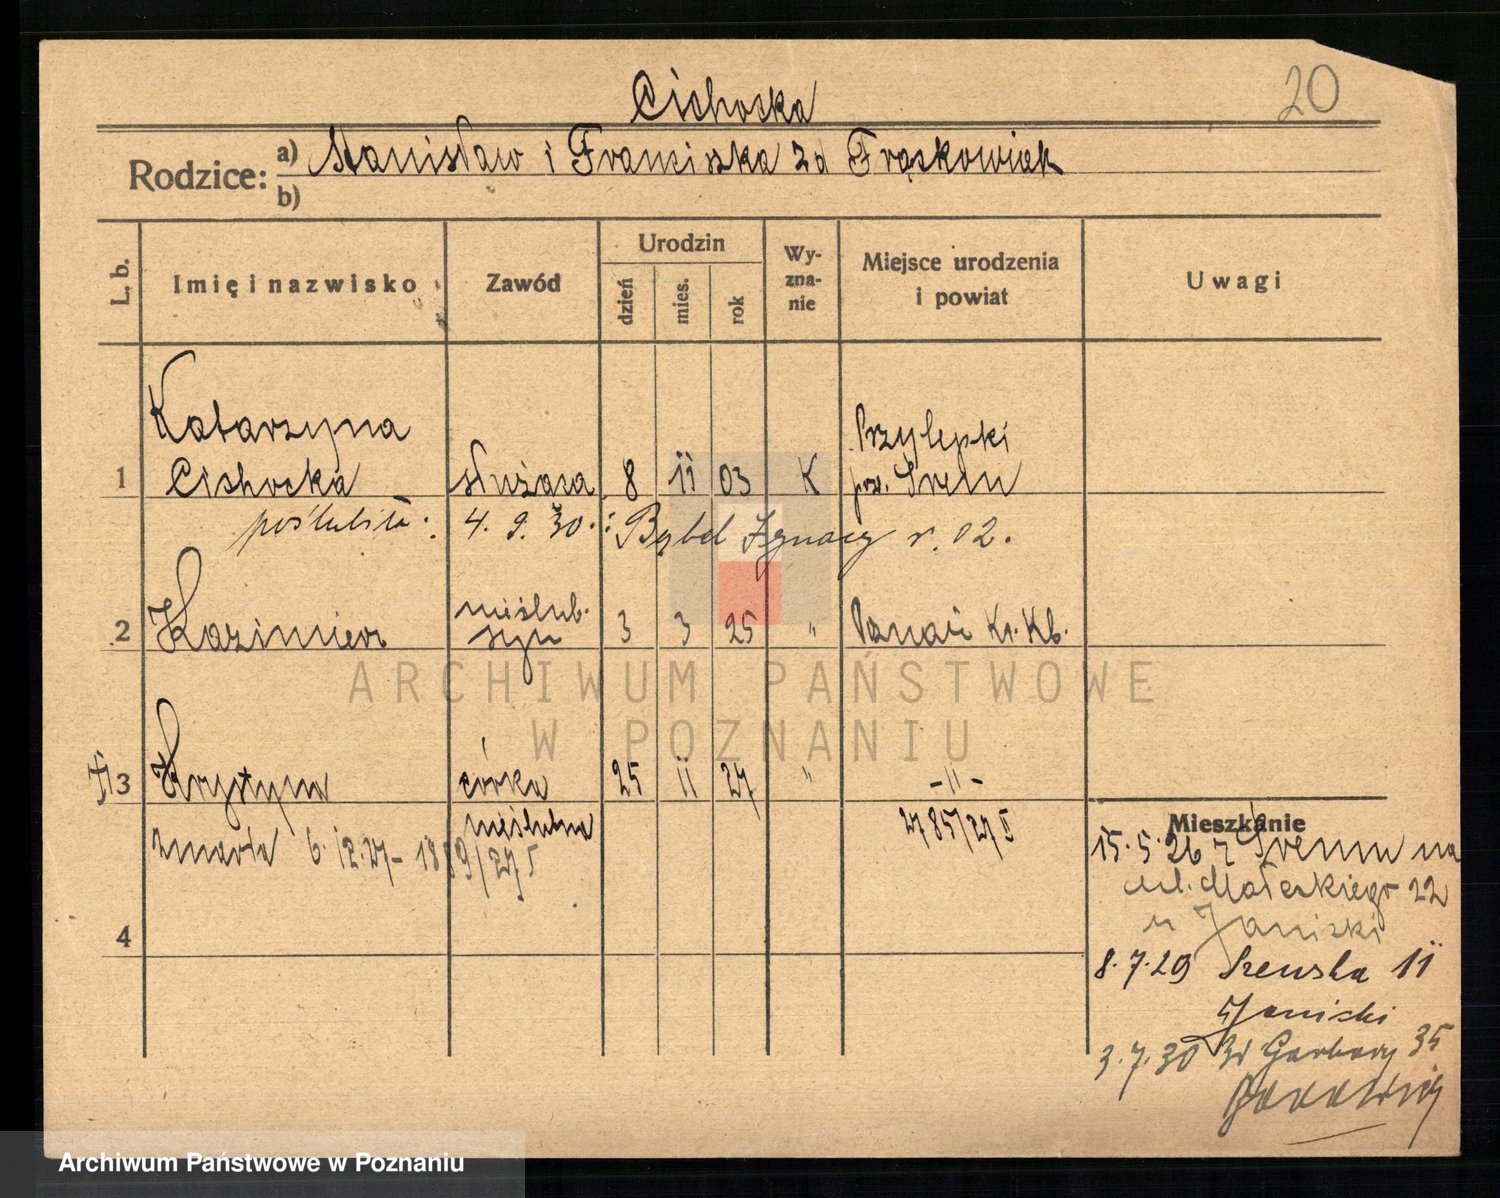 20
Cichocka
Rodzice: a) Stanisław i Franciszka zd Frąckowiak
b)
L. b. Imię i nazwisko Zawód Urodzin dzień mies. rok Wy-zna-nie Miejsce urodzenia i powiat Uwagi
Katarzyna Przylepki
1 Cichocka służąca 8 11 03 K pow. Śrem
poślubiła: 4. 9. 30.: Bąbel Ignacy r. 02.
nieślub.
2 Kazimierz syn 3 3 25 " Poznań Kr. Kb.
ARCHIWUM PAŃSTWOWE
W POZNANIU
3 Krystyna córka 25 11 27 " -11-
nieślubna 2785/27 II
zmarła 6. 12. 27 - 1889/27 I
4
Mieszkanie
15. 5. 26 z Śremu na
ul. Małeckiego 22
u Janicki
8. 7. 29 Szewska 11
Janicki
3. 7. 30 Garbary 35
Archiwum Państwowe w Poznaniu